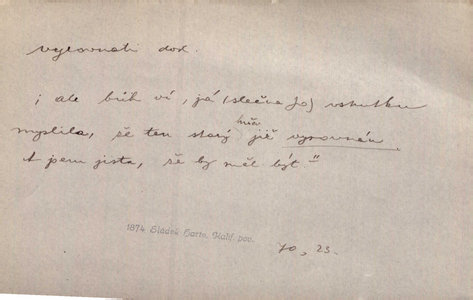 vyrovnati dok.
; ale bůh ví, já (slečna Jo) vskutku
myslila, že ten starý účet již vyrovnán.
A jsem jista, že by měl být."
1874 Sládek Harte, Kalif. pov.
70, 23.